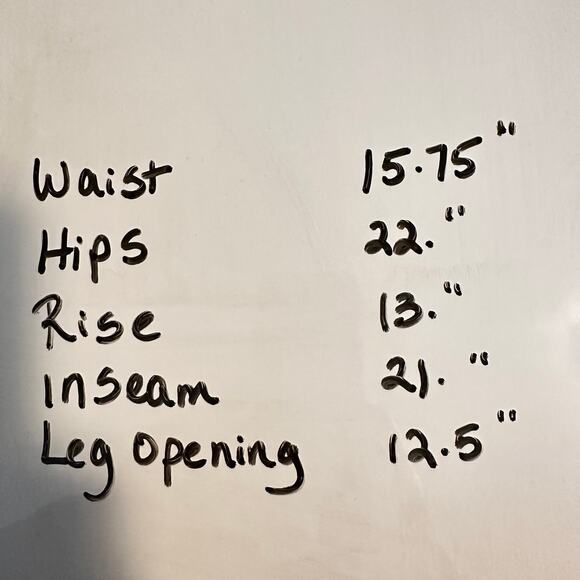 Waist 15.75"
Hips 22."
Rise 13."
Inseam 21."
Leg Opening 12.5"